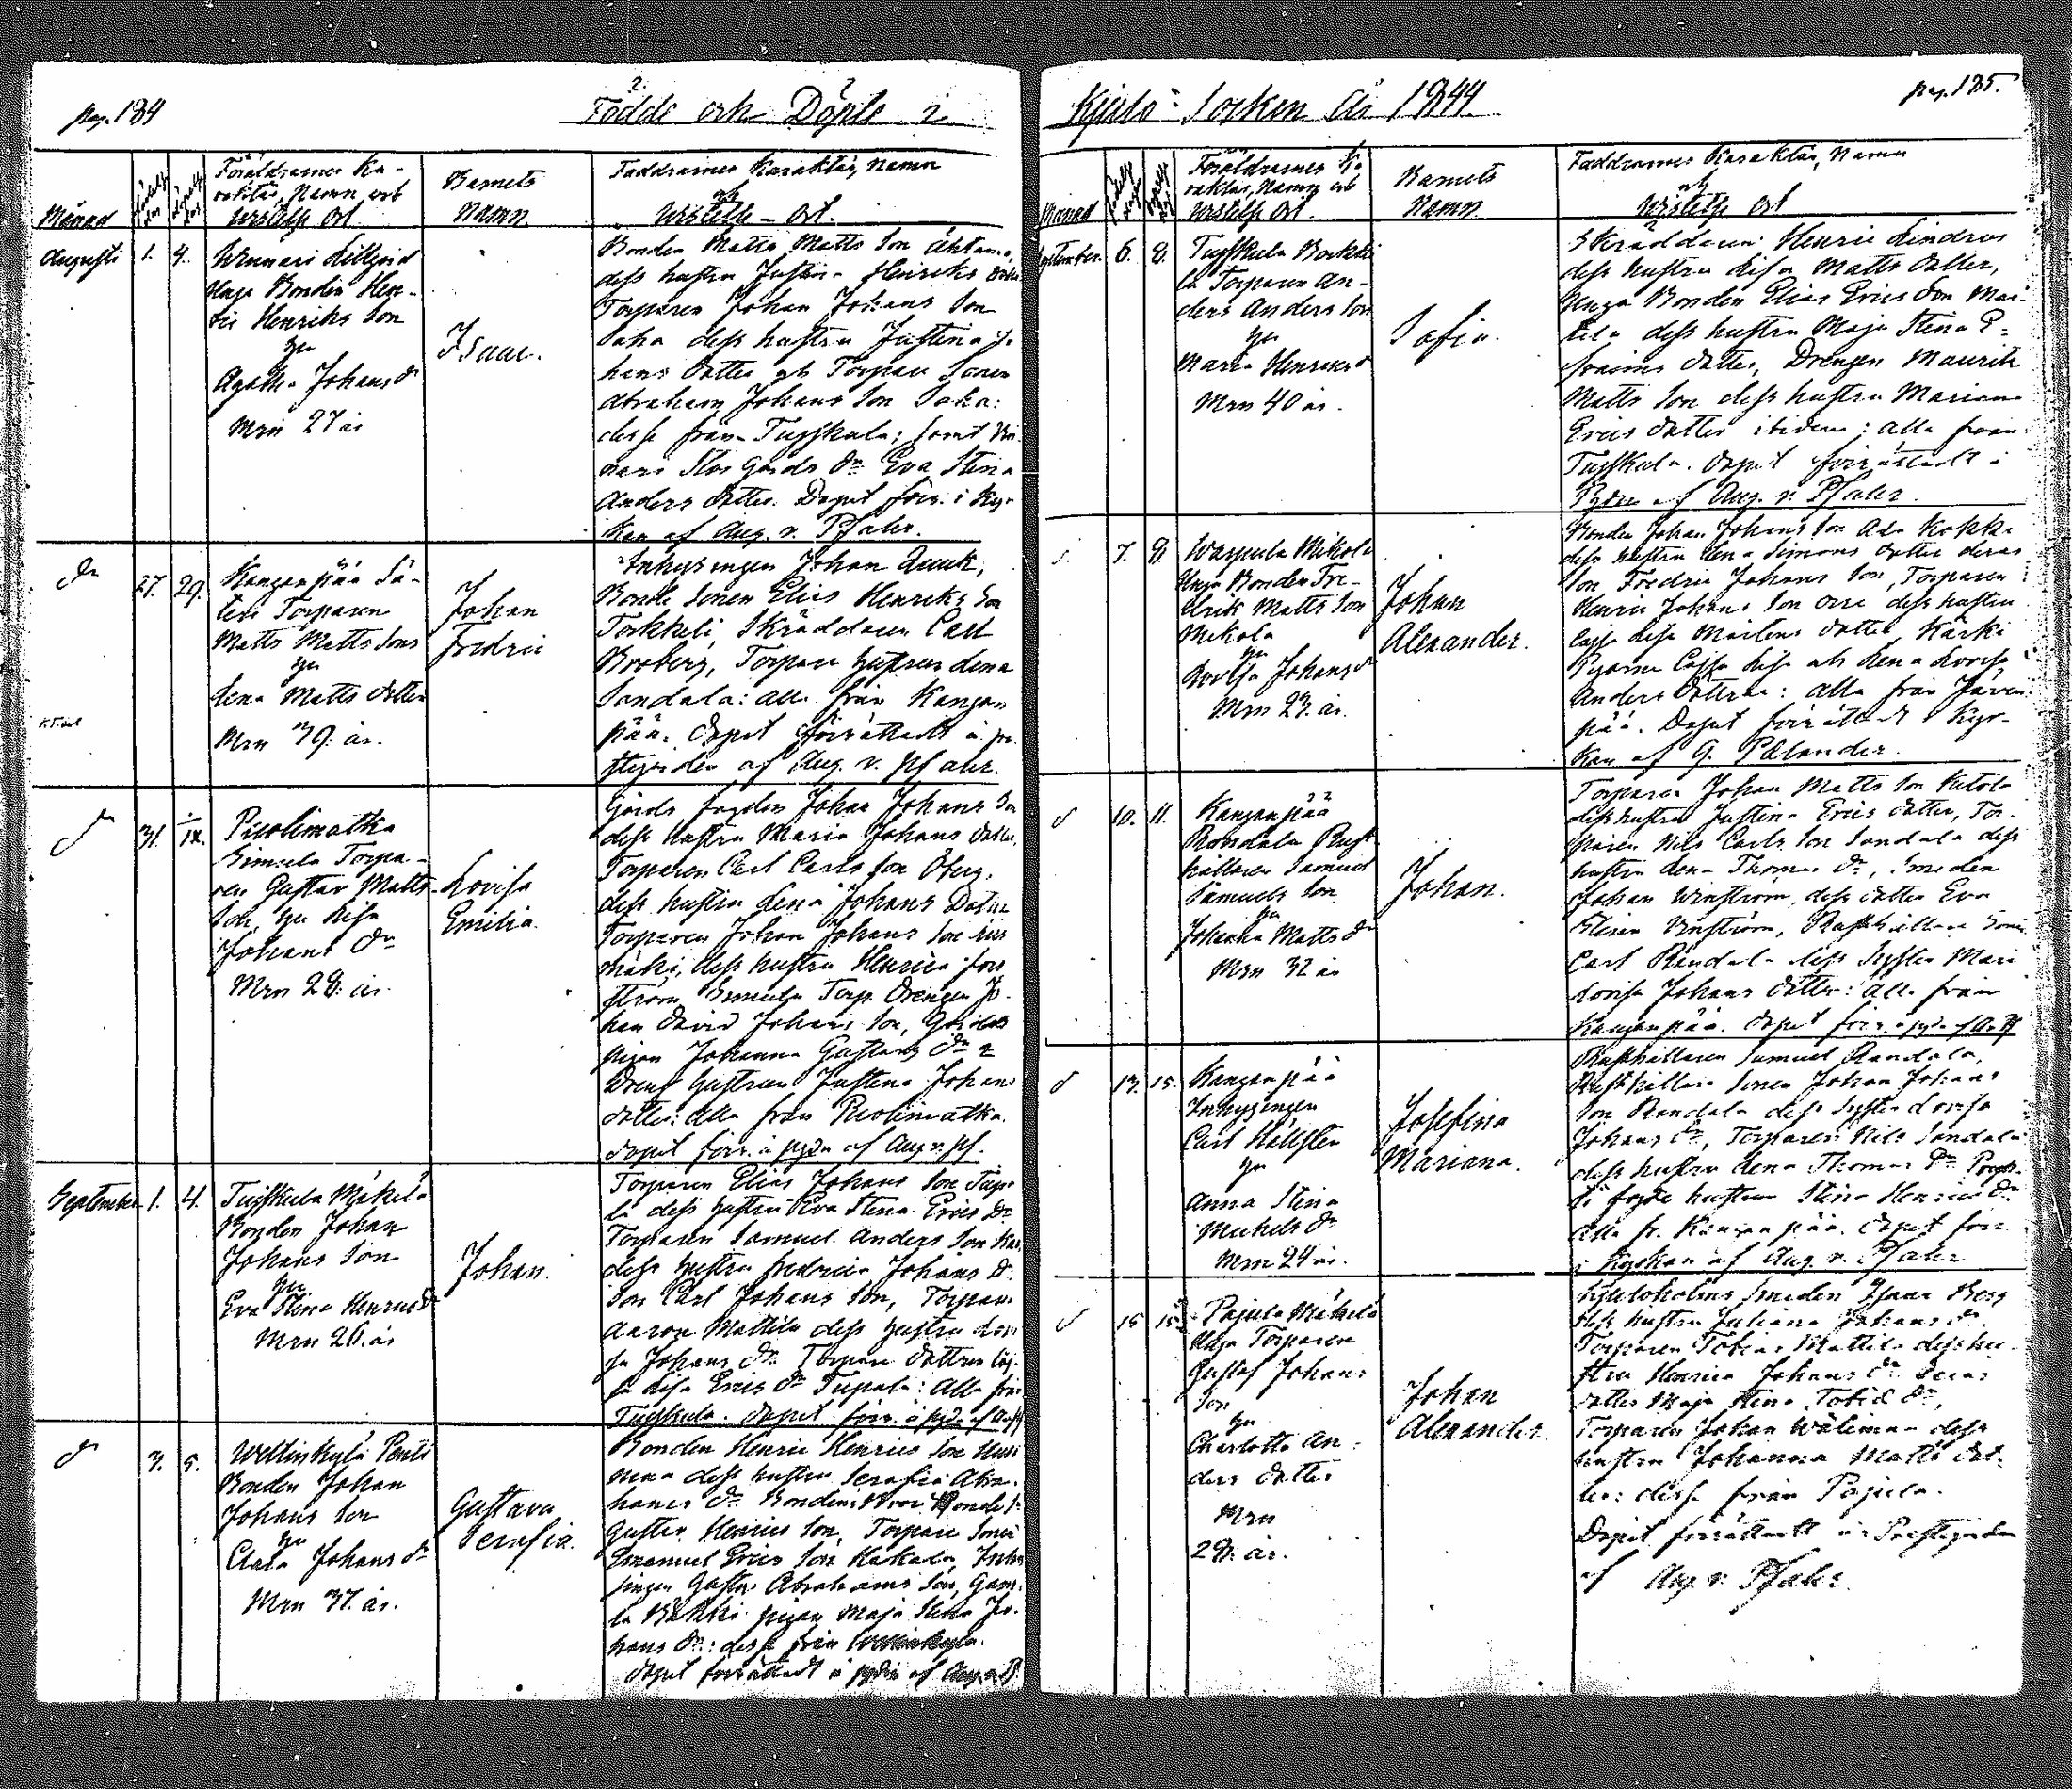 pag. 134
Födde och Döpte i
Månad
Födelse dag
Föräldrarnes Ka-
raktär, Namn och
Wistelse Ort
Barnets
Namn
Faddrarnes Karaktär, Namn
och
Wistelse-Ort.
Augusti 1. 4.
Winnari Lilljord
Unga Bonden Hen-
ric Henriks Son
Agatha Johans dr
Mrn 27 år
Isaac.
Bonden Matts Matts Son
dess hustru Justina Henriks
Torparen Johan Johans Son
Saha dess hustru Justina Jo-
hans dotter och Torpare Sonen
Abraham Johans Son Saha:
desse från Tuiskula; samt
Eva Stina
Anders dotter. Dopet förr. i Kyr-
kan af Aug. v. Pfaler.
dr 27. 29.
Kanganpää Sä-
teri Torparen
Matts Matts Sons
Lena Matts dotter
Mrn 39. år.
Johan
Fredric
Inhysingen Johan Quick,
Bonde Sonen Elias Henriks Son
Torkkeli, Skräddaren Carl
Broberg, Torpare hustrun Lena
Sandala: alla från Kangan
pää. Dopet förrättadt i pre-
stgården af Aug. v. Pfaler.
31. 1/IX.
Puolimatka
Simula Torpa-
ren Gustav Matts
Son, hu Lisa
Johans dr
Mrn 28. år.
Lovisa
Emilia.
Gårds fogden Johan Johans Son
dess hustru Maria Johans dotter,
Torparen Carl Carls Son Öberg,
dess hustru Lena Johans Dotter
Torparen Johan Johans Son
mäki, dess hustru Henrica Fors
ström, Simula Torp. Drengen Jo-
han David Johans Son, Gårds
pigan Johanna Gustavs dr
Dreng hustrun Justina Johans
dotter: alla från Puolimatka.
Dopet förr. i pgdn af Aug. v. Pf.
September 1. 4.
Tuiskula Mäkilä
Bonden Johan
Johans Son
hu
Eva Stina Henrics dr
Mrn 26. år
Johan.
Torparen Elias Johans Son
dess hustru Eva Stina Erics dr
Torparen Samuel Anders Son
dess hustru Fredrica Johans dr
Son Carl Johans Son, Torparen
Aaron Mattila dess hustru Lovi-
sa Johans dr Torpare dottren Caj-
sa Lisa Erics dr Tupala: Alla från
Tuiskula. Dopet förr. i pgdn af A. v. Pf
3. 5.
Wellinkylä Pentti
Bonden Johan
Johans Son
hu
Clara Johans dr
Mrn 37. år.
Gustava
Serafia.
Bonden Henric Henrics Son
dess hustru Serafia Abra-
hams dr
Gustav Henrics Son, Torpare Sonen
Emanuel Erics Son Kakala,
Gustav Abrahams Son,
pigan Maja Stina Jo-
hans dr: desse från Wellinkylä.
Dopet förrättadt i pgdn af Aug. v. Pf.
Kjulo Socken År 1844.
pag. 135.
Månad
Föräldrarnes Ka-
raktär, Namn och
Wistelse Ort.
Barnets
Namn.
Faddrarnes Karaktär, Namn
och
Wistelse Ort
September. 6. 8.
Tuiskula
Torparen An-
ders Anders Son
hu
Maria Henriks dr
Mrn 40 år.
Sofia.
Skräddaren Henric Lindros
dess hustru Lisa Matts dotter,
Unga Bonden Elias Erics Son
dess hustru Maja Stina
dotter, Drengen Maurits
Matts Son dess hustru Mariana
Erics dotter ibidem: alla från
Tuiskula. Dopet förrättadt i
Pgdn af Aug. v. Pfaler.
7. 8.
Warpula Mikola
Unga Bonden Fre-
drik Matts Son
Mikola
hu
Lovisa Johans dr
Mrn 23. år.
Johan
Alexander.
Bonden Johan Johans Son Kokki
dess hustru Lena Simons dotter deras
Son Fredric Johans Son, Torparen
Henric Johans Son dess hustru
Cajsa Lisa Mårtens dotter, Kärki
Pigorne Cajsa Lisa och Lena Lovisa
Anders döttrar: alla från Järven-
pää. Dopet förrättadt i Kyr-
kan af G. Pælander.
10. 11.
Kanganpää
Randala Rust-
hållaren Samuel
Samuels Son
hu
Johanna Matts dr
Mrn 32 år
Johan.
Torparen Johan Matts Son
dess hustru Justina Erics dotter, Tor-
paren Nils Carls Son Sandala dess
hustru Lena Thomas dr, Smeden
Johan Winström, dess dotter Eva
Winström, Rusthållare Sonen
Carl Randala dess syster Mari
Lovisa Johans dotter: alla från
Kanganpää. Dopet förr. i pgdn af A. v. Pf
13. 15.
Kanganpää
Inhysingen
Carl Hällsten
hu
Anna Stina
Michels dr
Mrn 24 år.
Josefina
Mariana.
Rusthållaren Samuel Randala,
Rusthållare Sonen Johan Johans
Son Randala dess syster Lovisa
Johans dr, Torparen Nils Sandala
dess hustru Lena Thomas dr
hustrun Stina Henrics dr
alla fr. Kanganpää. Dopet förr.
i Kyrkan af Aug. v. Pfaler
15 15.
Pajula Mäkelä
Unga Torparen
Gustaf Johans
Son
hu
Charlotta An-
ders dotter
Mrn
28. år.
Johan
Alexander.
Kjuloholms Smeden Isaac Berg
dess hustru Juliana Johans dr.
Torparen Tobias Mattila dess hu-
stru Henrica Johans dr deras
dotter Maja Stina Tobias dr,
Torparen Johan Wälimaa dess
hustru Johanna Matts dot-
ter: desse från Pajula.
Dopet förrättadt i Prestgården
af Aug. v. Pfaler.